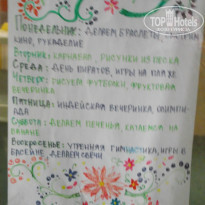 TOP HOTELS
Понедельник: делаем браслеты,
кино, рукоделие
Вторник: карнавал, рисунки из песка
Среда: день пиратов, игры на пляже
Четверг: рисуем футболки, фруктовая
вечеринка
Пятница: индейская вечеринка, олимпи-
ада
Суббота: делаем печенья, катаемся на
банане
Воскресение: утренняя гимнастика, игры в
бассейне, делаем свечи